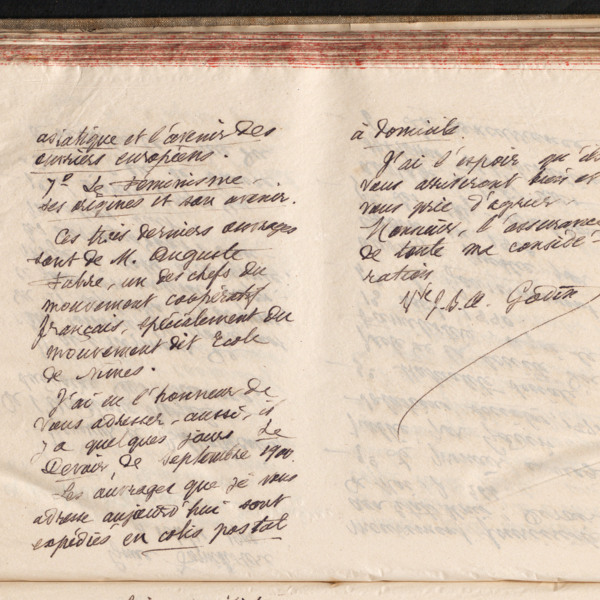 asiatique et l'avenir des
ouvriers européens.
7º Le Féminisme.
ses origines et son avenir.
Ces trois derniers ouvrages
sont de M. Auguste
Fabre, un des chefs du
mouvement coopératif
français, spécialement du
mouvement dit Ecole
de Nimes.
J'ai eu l'honneur de
vous adresser, aussi, il
y a quelques jours Le
Devoir de septembre 1900
Les ouvrages que je vous
adresse aujourd'hui sont
expédiés en colis postal
à domicile.
J'ai l'espoir qu'ils
vous arriveront bien et
vous prie d'agréer
Monsieur, l'assurance
de toute ma considé-
ration
Vve J. B. A. Godin